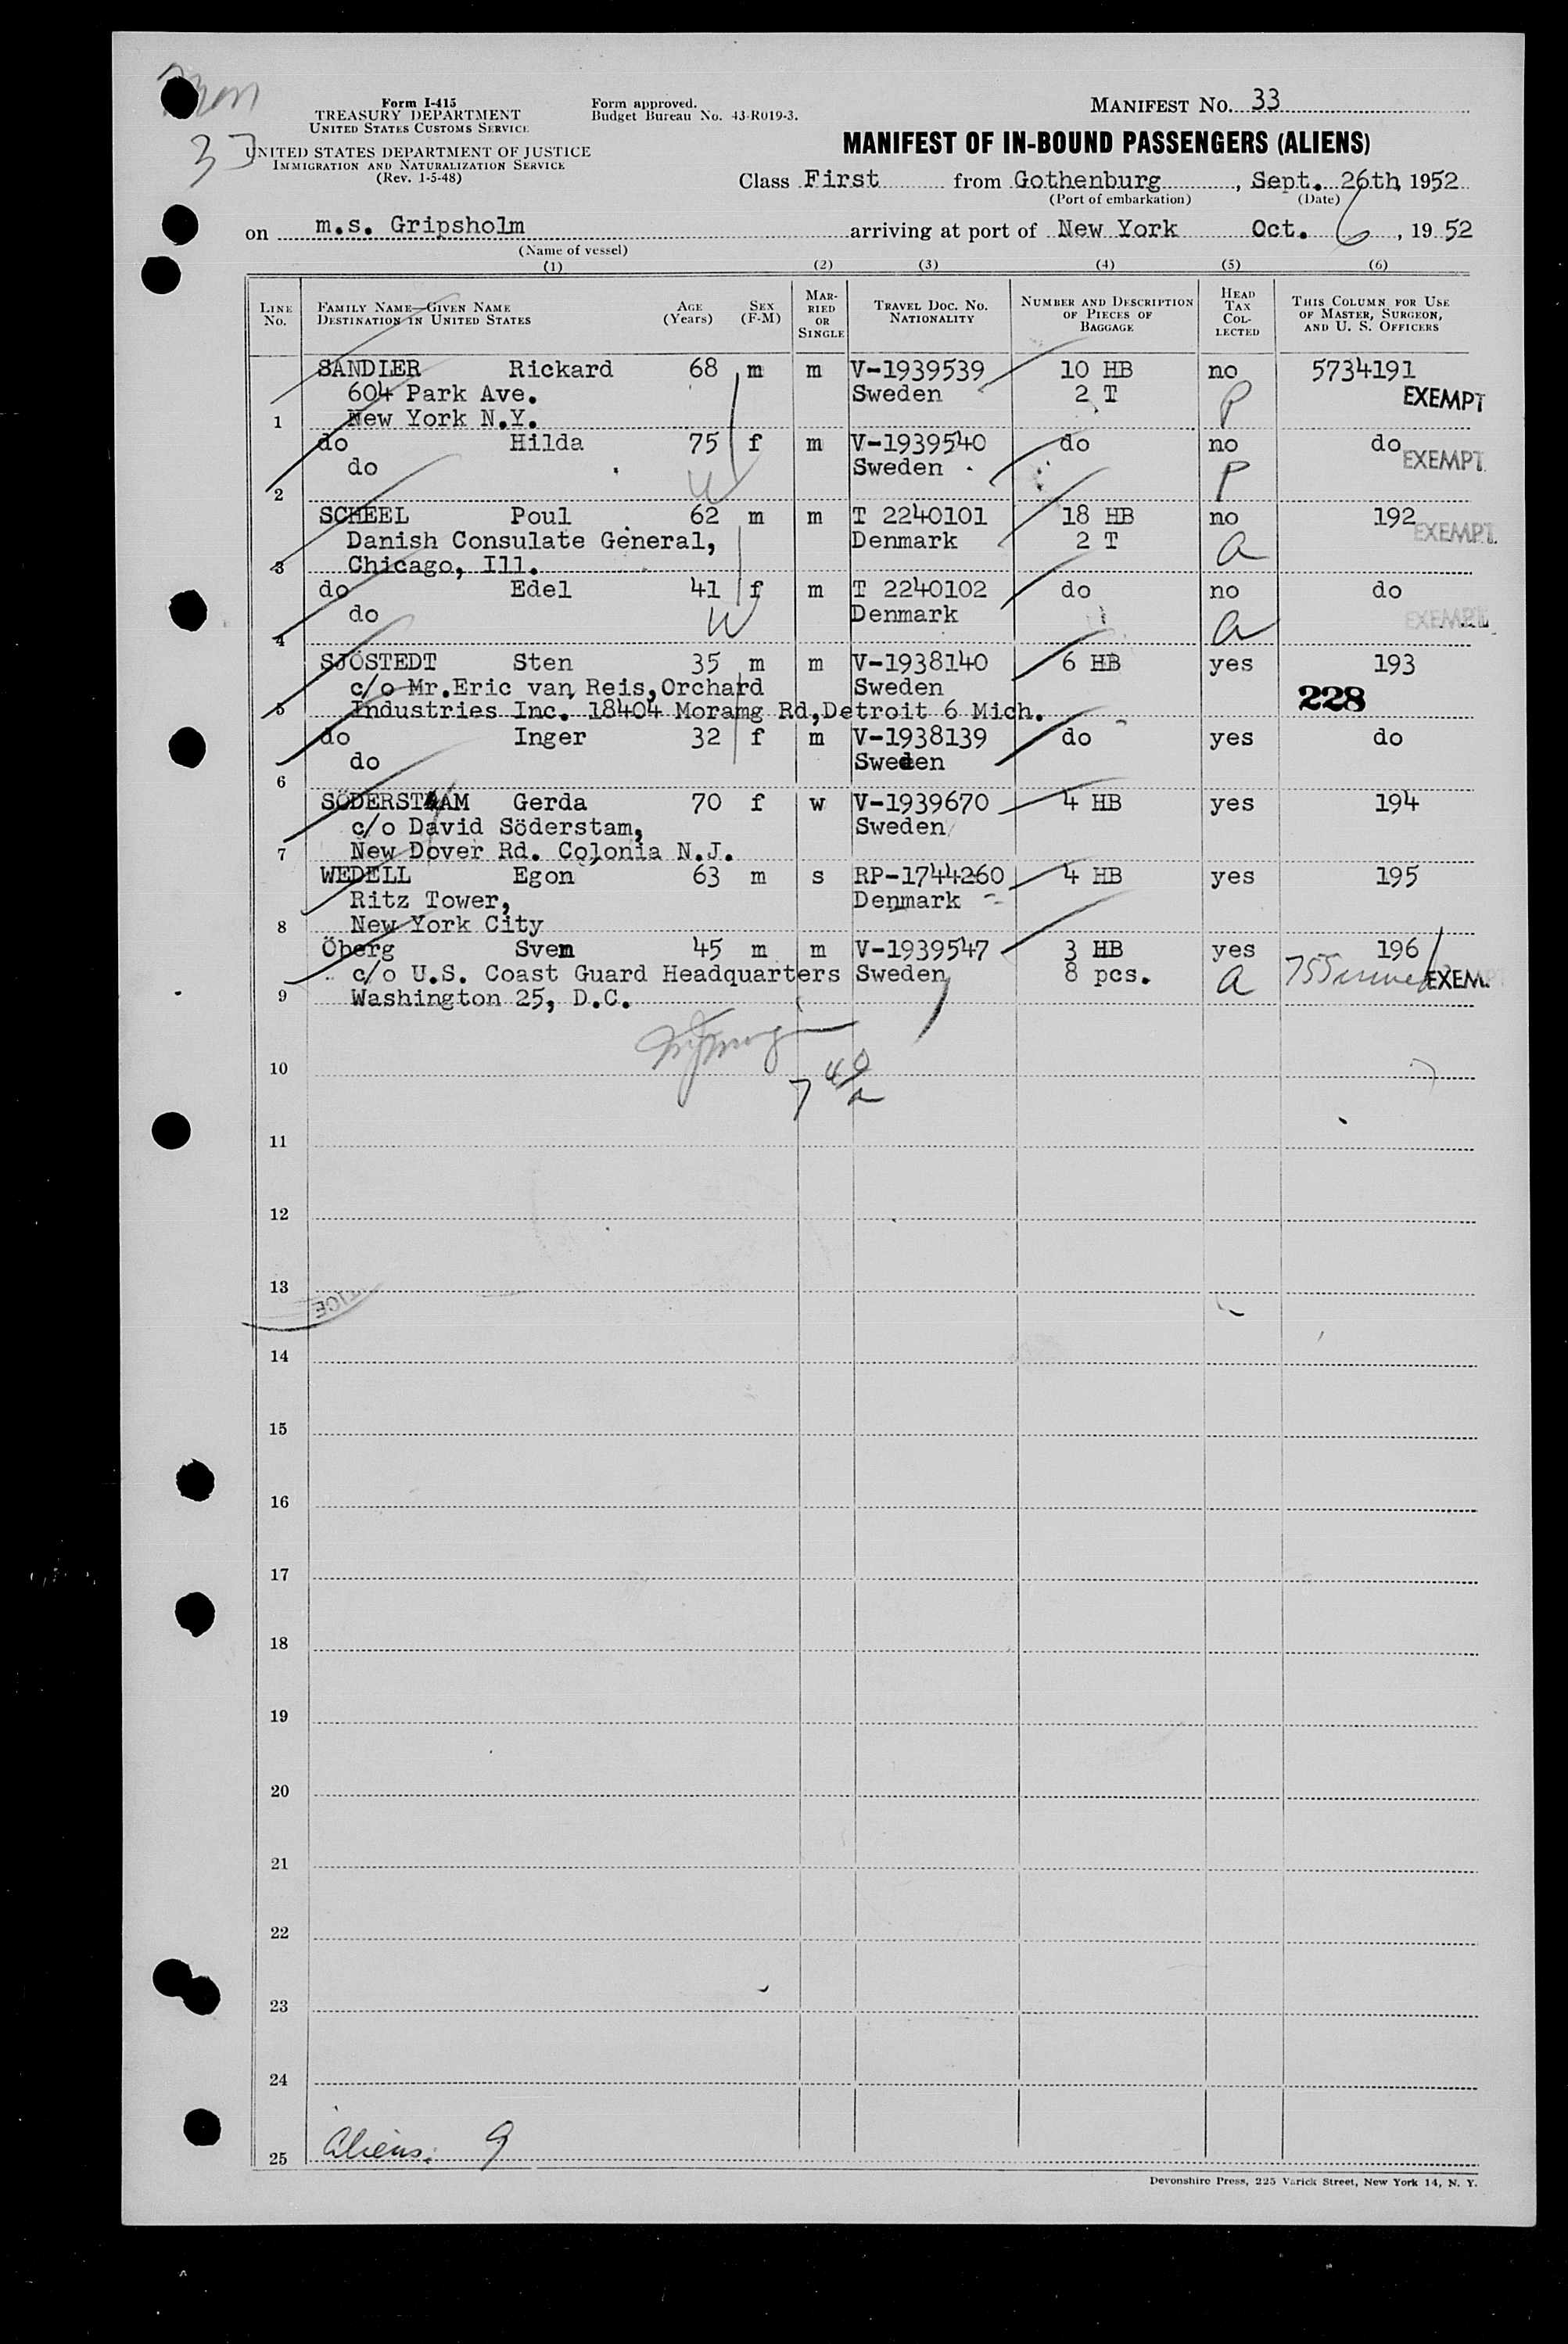 33
Form I-415
TREASURY DEPARTMENT
UNITED STATES CUSTOMS SERVICE
UNITED STATES DEPARTMENT OF JUSTICE
IMMIGRATION AND NATURALIZATION SERVICE
(Rev. 1-5-48)
Form approved.
Budget Bureau No. 43-R019-3.
MANIFEST No. 33
MANIFEST OF IN-BOUND PASSENGERS (ALIENS)
Class First from Gothenburg, Sept. 26th, 1952
(Port of embarkation) (Date)
on m.s. Gripsholm arriving at port of New York Oct. 6, 1952
(Name of vessel)
(1) (2) (3) (4) (5) (6)
LINE No. FAMILY NAME—GIVEN NAME DESTINATION IN UNITED STATES AGE (Years) SEX (F-M) MARRIED OR SINGLE TRAVEL DOC. NO. NATIONALITY NUMBER AND DESCRIPTION OF PIECES OF BAGGAGE HEAD TAX COLLECTED THIS COLUMN FOR USE OF MASTER, SURGEON, AND U. S. OFFICERS
SANDLER Rickard 68 m m V-1939539 10 HB no 5734191
604 Park Ave. Sweden 2 T P EXEMPT
1 New York N.Y.
do Hilda 75 f m V-1939540 do no do
do Sweden P EXEMPT
2 W
SCHEEL Poul 62 m m T 2240101 18 HB no 192
Danish Consulate General, Denmark 2 T a EXEMPT
3 Chicago, Ill.
do Edel 41 f m T 2240102 do no do
do W Denmark a EXEMPT
4
SJÖSTEDT Sten 35 m m V-1938140 6 HB yes 193
c/o Mr.Eric van Reis,Orchard Sweden 228
5 Industries Inc. 18404 Moramg Rd,Detroit 6 Mich.
do Inger 32 f m V-1938139 do yes do
do Sweden
6
SÖDERSTAM Gerda 70 f w V-1939670 4 HB yes 194
c/o David Söderstam, Sweden
7 New Dover Rd. Colonia N.J.
WEDELL Egon 63 m s RP-1744260 4 HB yes 195
Ritz Tower, Denmark
8 New York City
Öberg Sven 45 m m V-1939547 3 HB yes 196
c/o U.S. Coast Guard Headquarters Sweden 8 pcs. a EXEMPT
9 Washington 25, D.C.
10
7 40
11
12
13
14
15
16
17
18
19
20
21
22
23
24
25 Aliens: 9
Devonshire Press, 225 Varick Street, New York 14, N. Y.